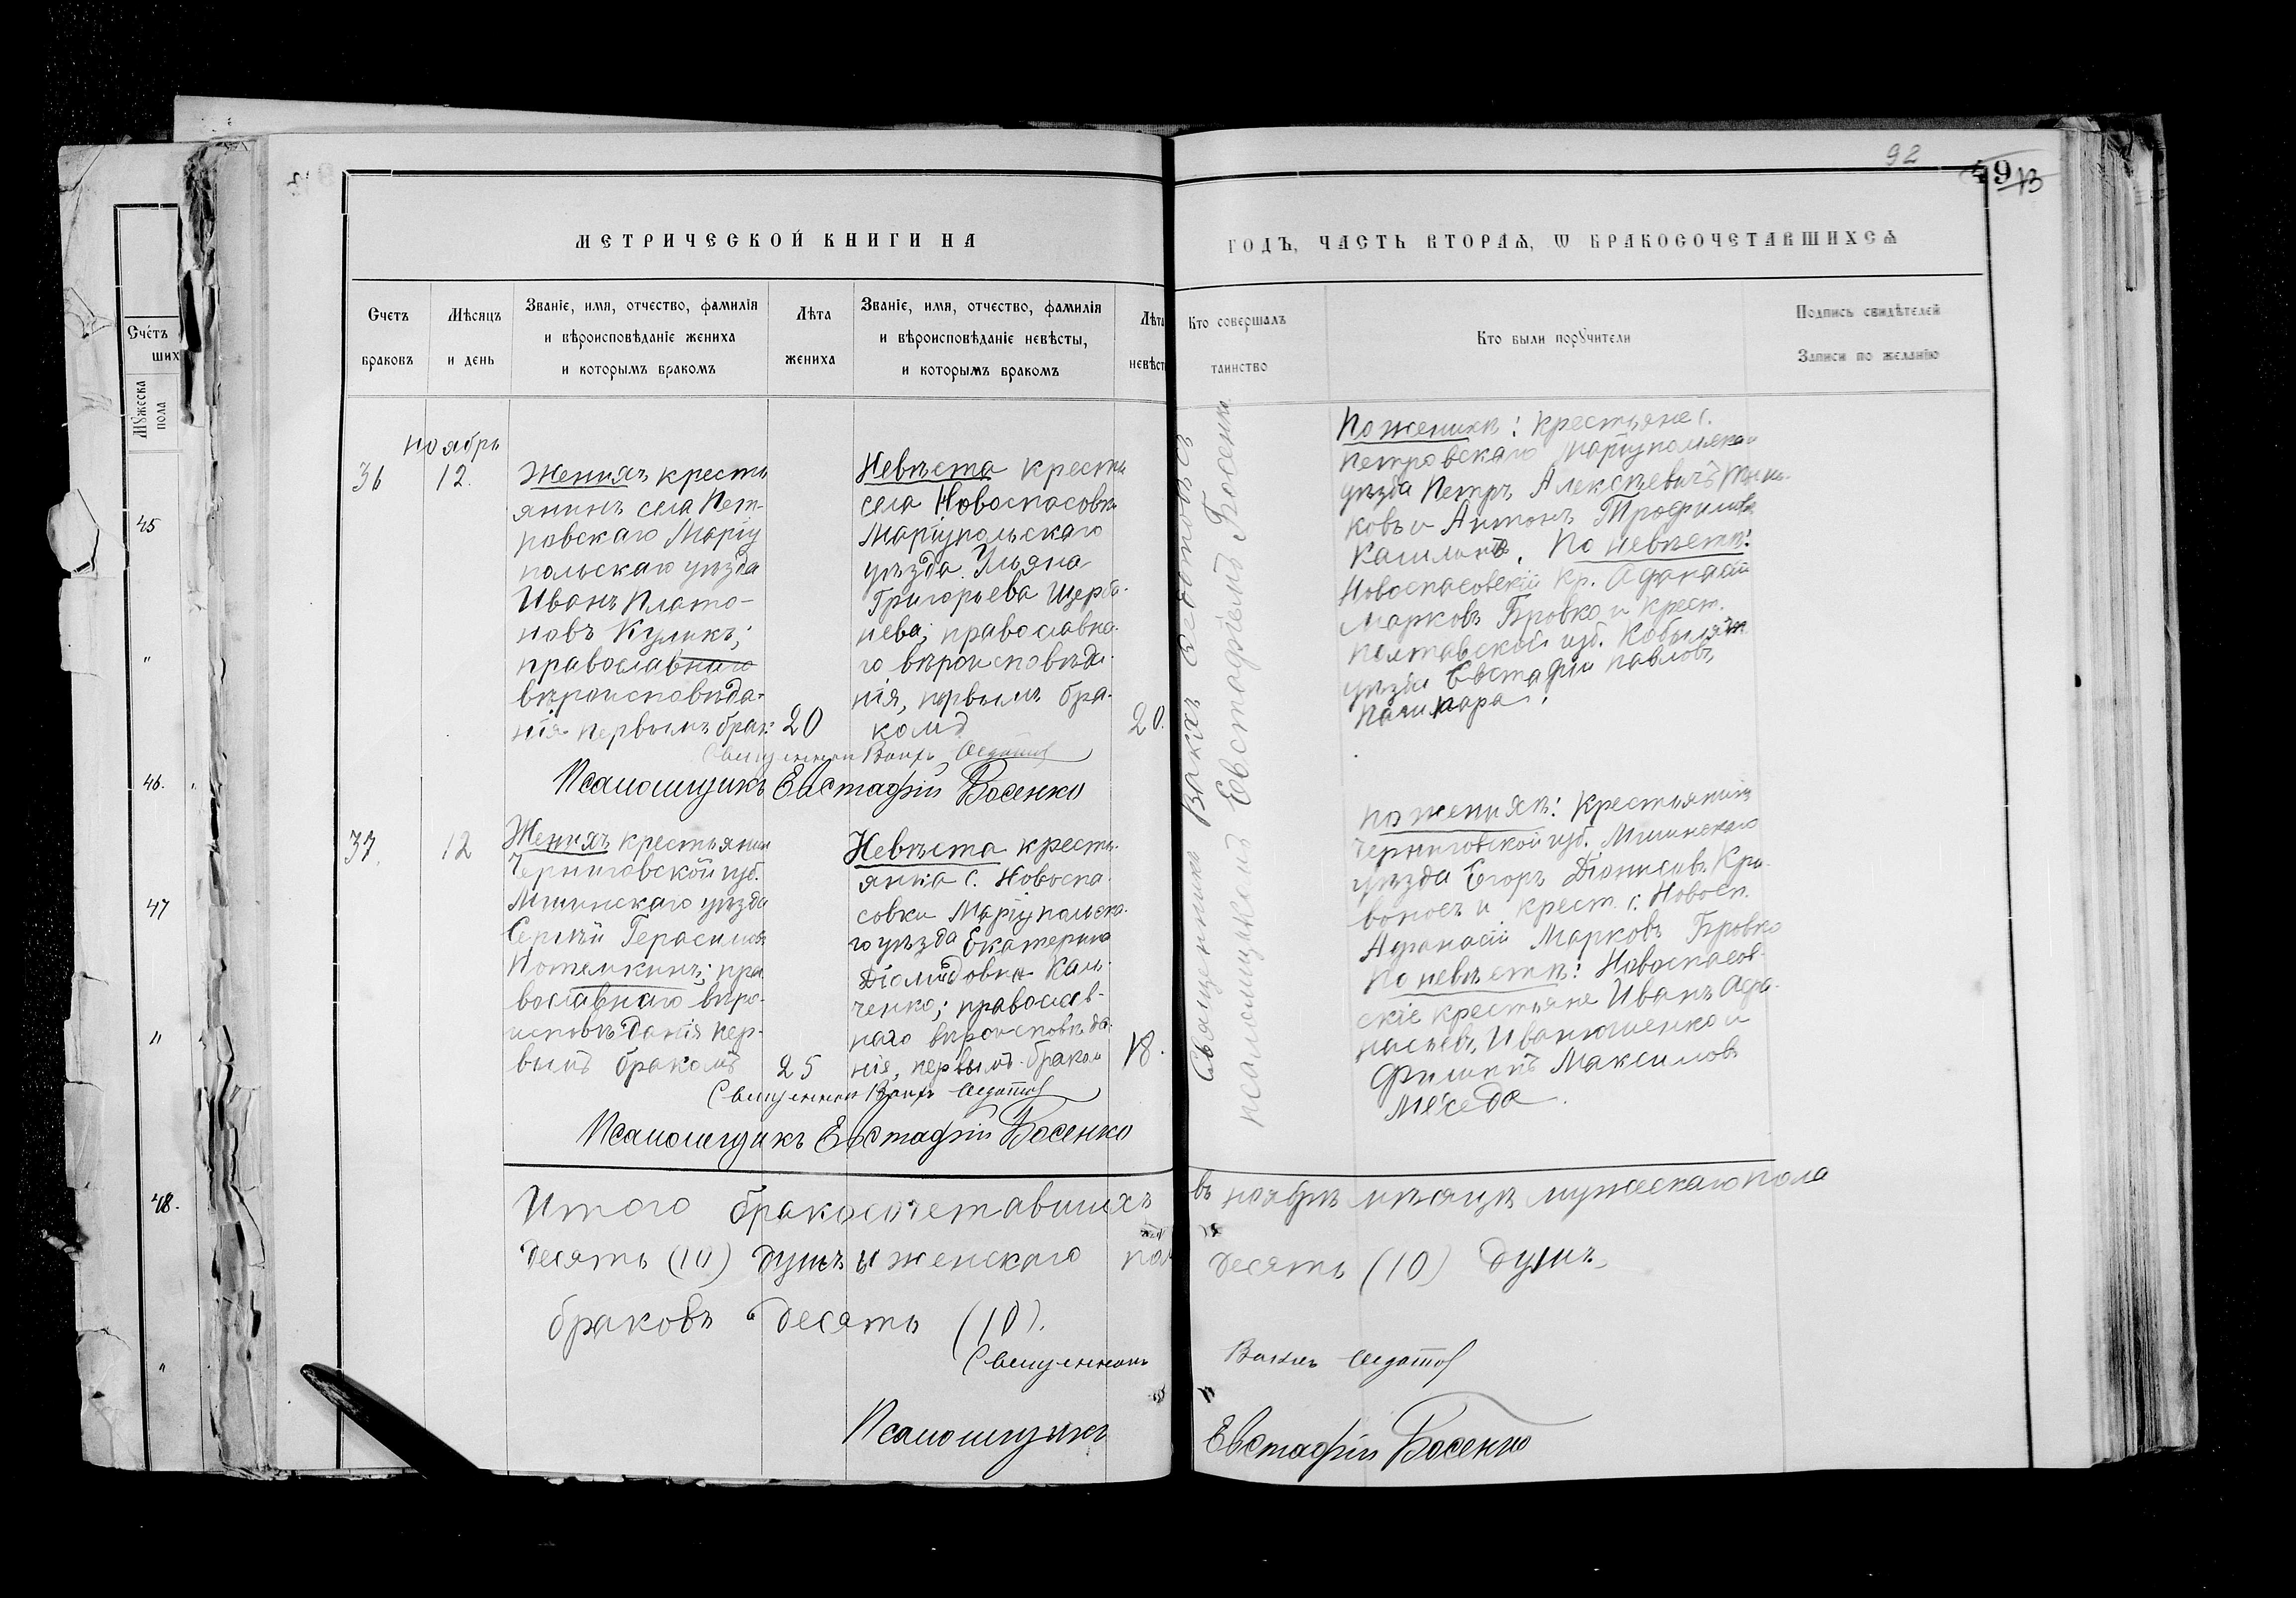 92
49
МЕТРИЧЕСКОЙ КНИГИ НА
ГОДЪ, ЧАСТЬ ВТОРАѦ, Ѡ БРАКОСОЧЕТАВШИХСѦ
Счетъ браковъ
Мѣсяцъ и день
Званіе, имя, отчество, фамилія
и вѣроисповѣданіе жениха
и которымъ бракомъ
Лѣта жениха
Званіе, имя, отчество, фамилія
и вѣроисповѣданіе невѣсты,
и которымъ бракомъ
Лѣта невѣст
Кто совершалъ таинство
Кто были поручители
Подпись свидѣтелей
Записи по желанію
Счетъ
ших
Мужеска пола
45
"
46.
47
"
48.
"
ноябрь
36
12.
Женихъ кресть
янинъ села Пет-
ровскаго Маріу
польскаго уѣзда
Иванъ Плато-
новъ Куликъ;
православнаго
вѣроисповѣда-
нія первымъ брак
20
Невѣста кресть
села Новоспасовки
Маріупольскаго
уѣзда Ульяна
Григорьева Щерб
нева; православна-
го вѣроисповѣда-
нія, первымъ бра-
комъ
20.
Священникъ
Псаломщикъ Евстафій Босенко
По женихѣ: крестьяне с.
Петровскаго Маріупольскаго
уѣзда Петръ Алексѣевичъ
ковъ и Антонъ Трофимов
По невѣстѣ:
Новоспасовскій кр. Афанасій
Марковъ Бровко и крест.
Полтавской губ. Кобыляк
уѣзда Евстафій Павловъ
37.
12
Женихъ крестьянин
Черниговской губ.
Мглинскаго уѣзда
Сергѣй Герасимовъ
Потемкинъ; пра
вославнаго вѣро-
исповѣданія пер-
вымъ бракомъ
25
Невѣста кресть-
янка с. Новоспа-
совки Маріупольска-
го уѣзда Екатерина
Діомидовна
ченко; православ-
наго вѣроисповѣда-
нія, первымъ браком
18.
Священникъ
Псаломщикъ Евстафій Босенко
По женихѣ: Крестьянинъ
Черниговской губ. Мглинскаго
уѣзда Егоръ Діонисовъ Кри-
воносъ и крест. с. Новосп.
Афанасій Марковъ Бровко
По невѣстѣ: Новоспасов-
скіе крестьяне Иванъ Афа-
насьевъ Иванющенко и
Филиппъ Максимовъ
Священникъ
псаломщикомъ Евстафіемъ Босенко
Итого бракосочетавшихъ въ ноябрѣ мѣсяцѣ мужескаго пола
десять (10) душъ и женскаго пол десять (10) душъ
браковъ десять (10).
Священникъ
Псаломщикъ Евстафій Босенко